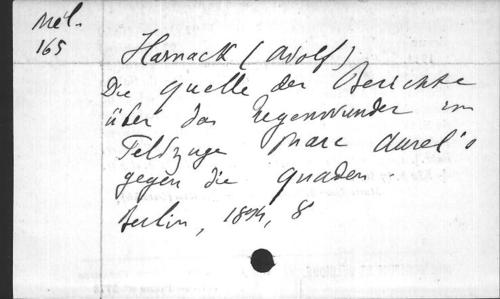 Mél.
165
Harnack (Adolf)
Die Quelle der Berichte
über das Regenwunder im
Feldzuge Marc Aurel's
gegen die Quaden
Berlin, 1894, 8°